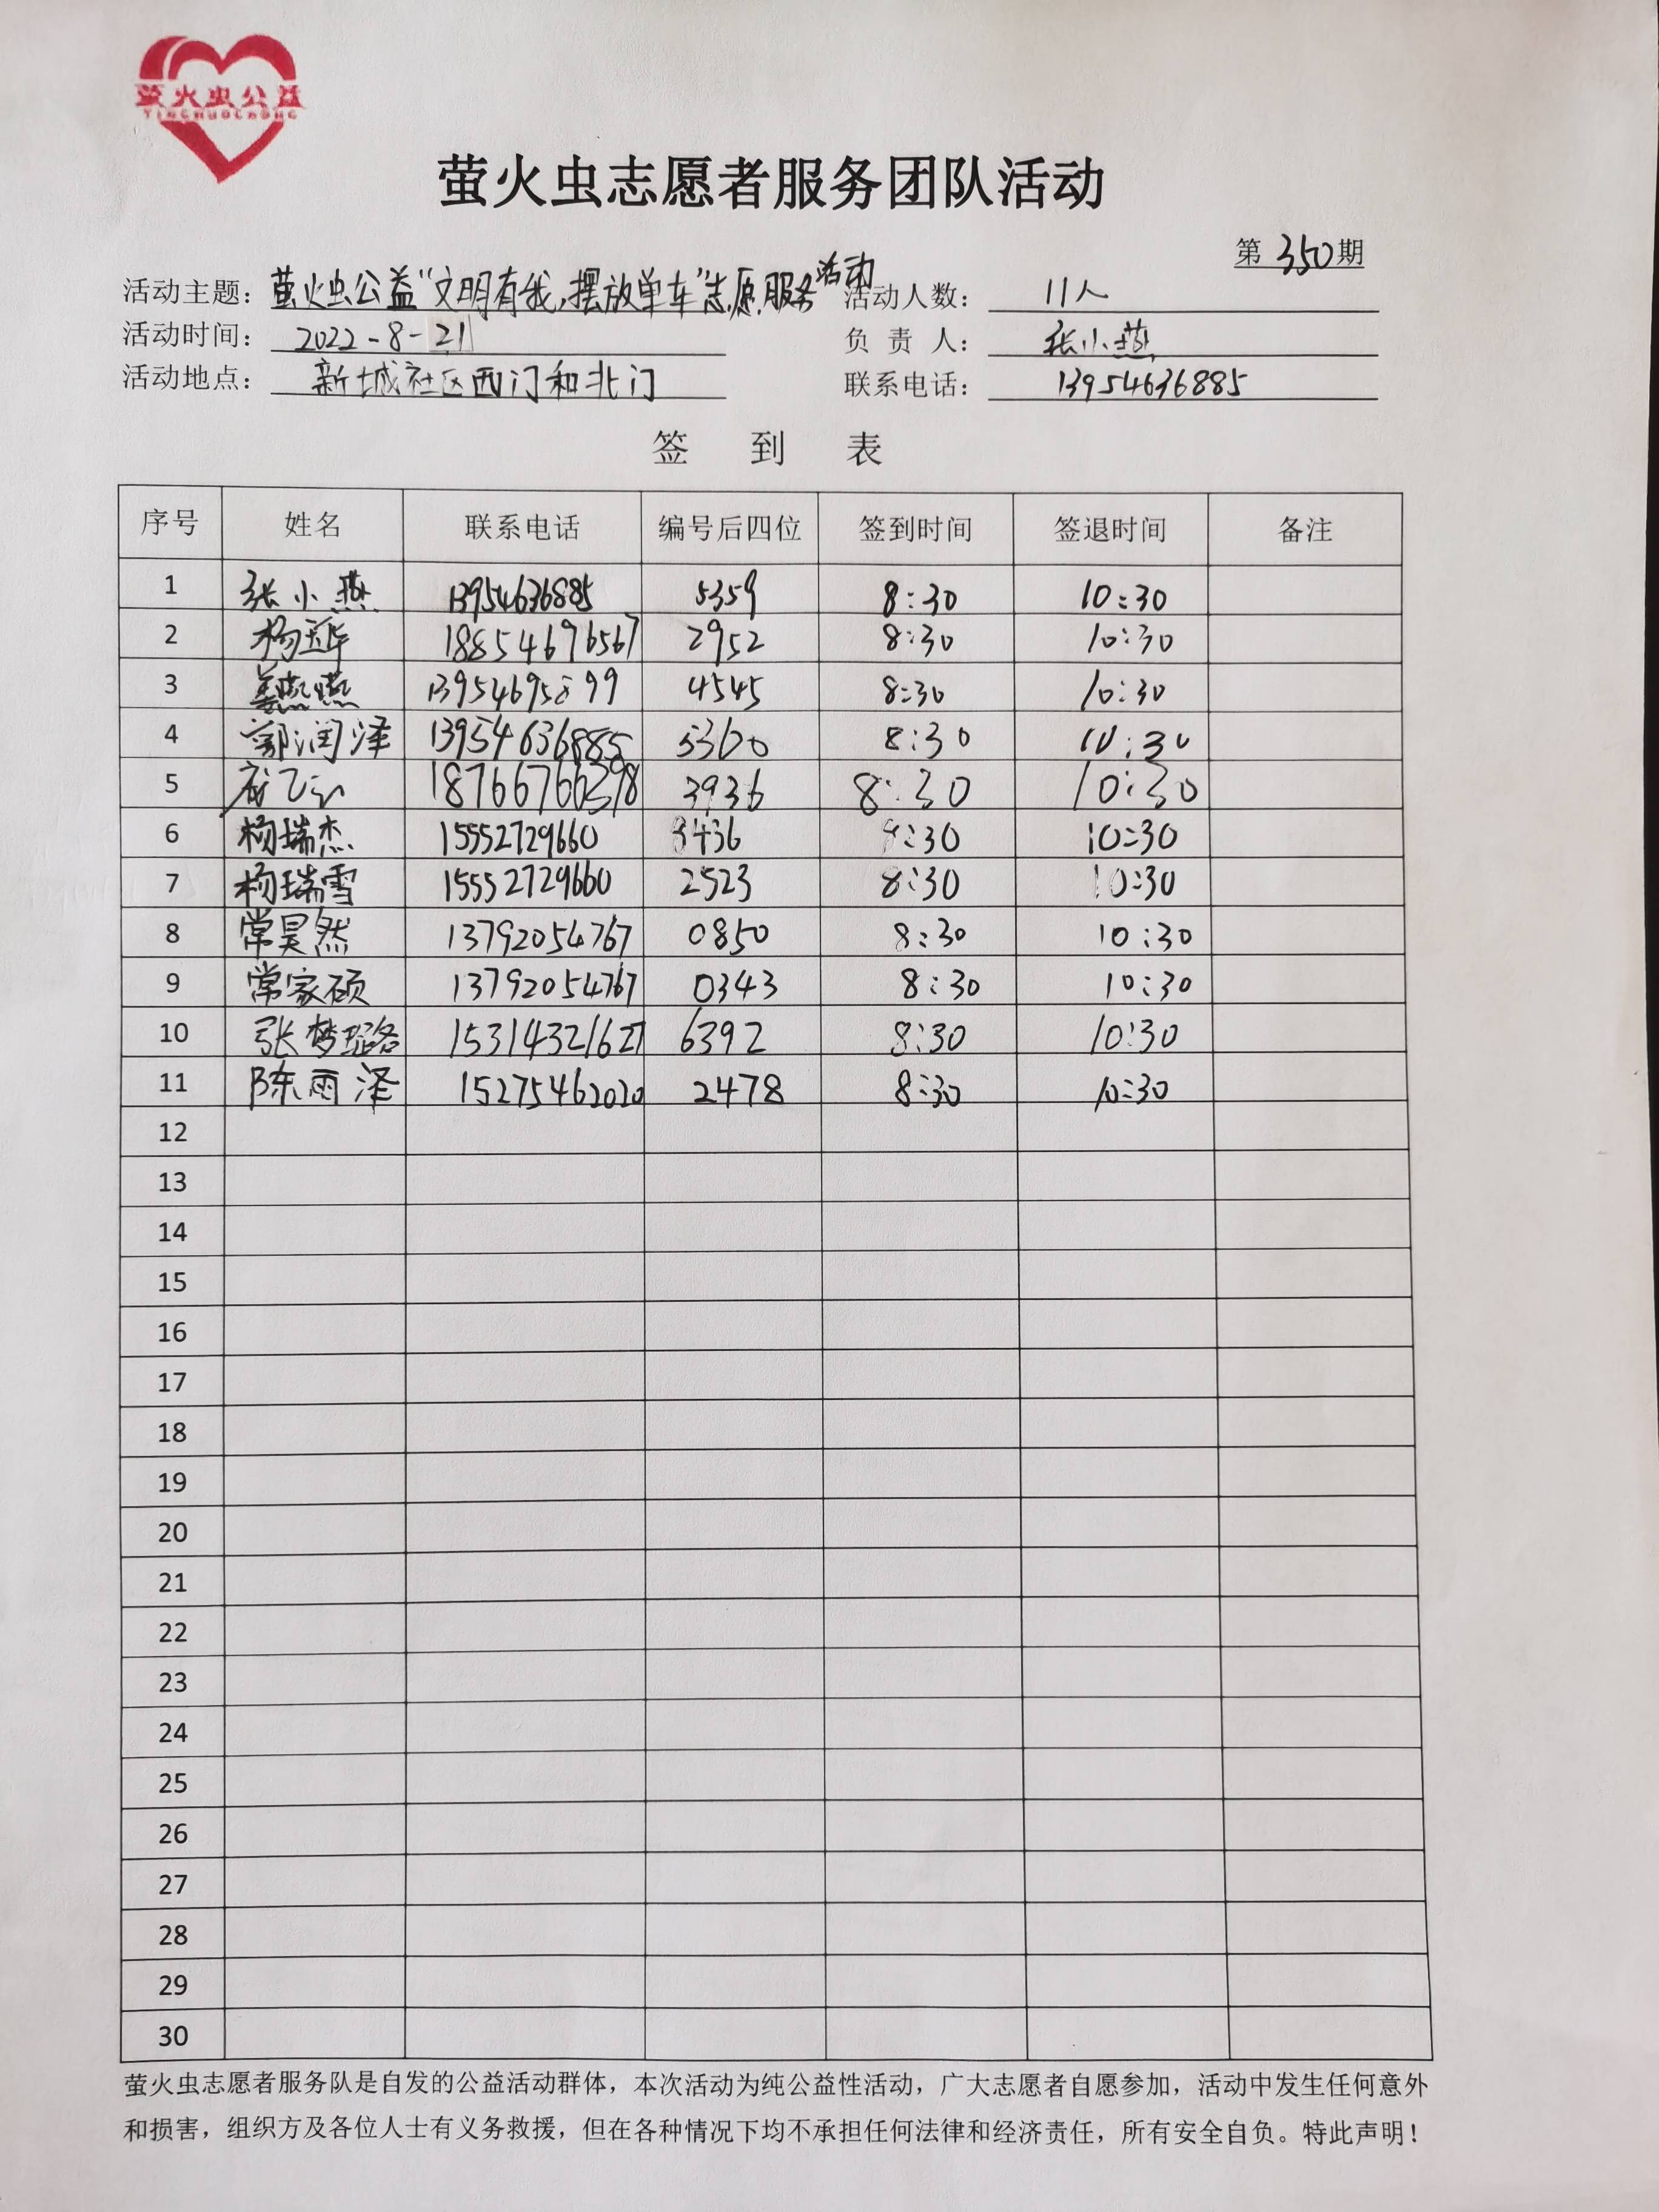 萤火虫公益
YINGHUOCHONG
萤火虫志愿者服务团队活动
第 350 期
活动主题：萤火虫公益“文明有我，摆放单车”志愿服务活动 活动人数： 11人
活动时间： 2022-8-21 负 责 人： 张小燕
活动地点： 新城社区西门和北门 联系电话： 13954636885
签 到 表
序号 姓名 联系电话 编号后四位 签到时间 签退时间 备注
1 张小燕 13954636885 5359 8:30 10:30
2 杨玉华 18854696567 2952 8:30 10:30
3 姜燕燕 13954695899 4545 8:30 10:30
4 郭润泽 13954636885 5360 8:30 10:30
5 18766766398 3936 8:30 10:30
6 杨瑞杰 15552729660 3436 8:30 10:30
7 杨瑞雪 15552729660 2523 8:30 10:30
8 常昊然 13792054767 0850 8:30 10:30
9 常家硕 13792054767 0343 8:30 10:30
10 张梦璐 15314321627 6392 8:30 10:30
11 陈雨泽 15275462020 2478 8:30 10:30
12
13
14
15
16
17
18
19
20
21
22
23
24
25
26
27
28
29
30
萤火虫志愿者服务队是自发的公益活动群体，本次活动为纯公益性活动，广大志愿者自愿参加，活动中发生任何意外
和损害，组织方及各位人士有义务救援，但在各种情况下均不承担任何法律和经济责任，所有安全自负。特此声明！